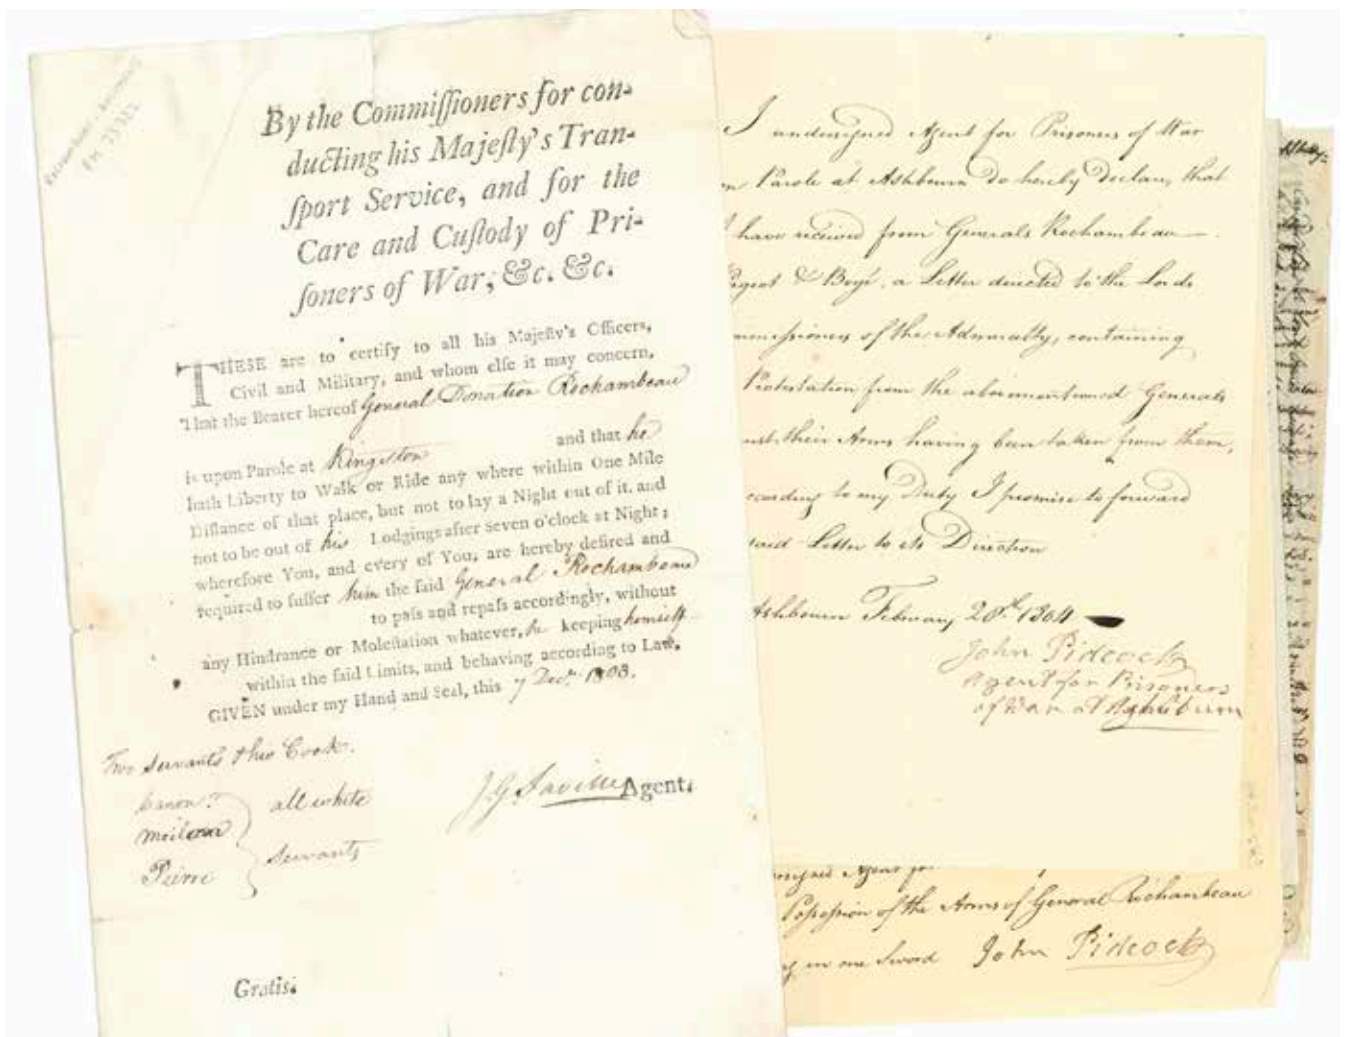 By the Commiſſioners for con-
ducting his Majeſty's Tran-
ſport Service, and for the
Care and Cuſtody of Pri-
ſoners of War; &c. &c.
THESE are to certify to all his Majeſty's Officers,
Civil and Military, and whom elſe it may concern,
That the Bearer hereof General Donatien Rochambeau
and that he
is upon Parole at Kingston
hath Liberty to Walk or Ride any where within One Mile
Diſtance of that place, but not to lay a Night out of it, and
not to be out of his Lodgings after Seven o'clock at Night;
wherefore You, and every of You, are hereby deſired and
required to ſuffer him the ſaid General Rochambeau
to paſs and repaſs accordingly, without
any Hindrance or Moleſtation whatever, he keeping himself
within the ſaid Limits, and behaving according to Law.
GIVEN under my Hand and Seal, this 7 Decr. 1803.
Two Servants & his Cook.
all white
Pierre
Servants
J. G. Saville Agent.
Gratis.
I undersigned Agent for Prisoners of War
on Parole at Ashbourn do hereby Declare, that
I have received from Generals Rochambeau
& Boyé, a Letter directed to the Lords
of the Admiralty, containing
Protestation from the abovementioned Generals
their Arms having been taken from them,
according to my Duty I promise to forward
said Letter to its Direction
Ashbourn February 20th. 1804
John Pidcock
Agent for Prisoners
of War at Ashburn
Agent for
Possession of the Arms of General Rochambeau
in one Sword John Pidcock